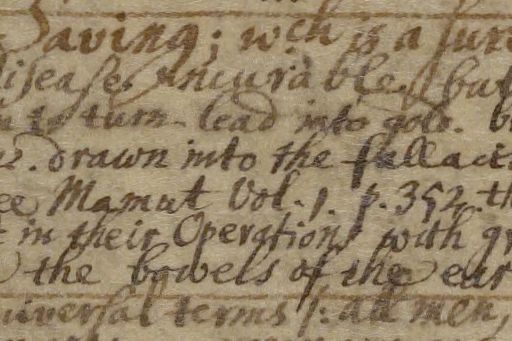 Saving; wch is a sure
diseases incurable, but
to turn lead into gold. b
drawn into the fallaci
ee Mamut Vol. 1. p. 352. th
t in their Operations with gr
the bowels of the ear
universal terms /: all men,